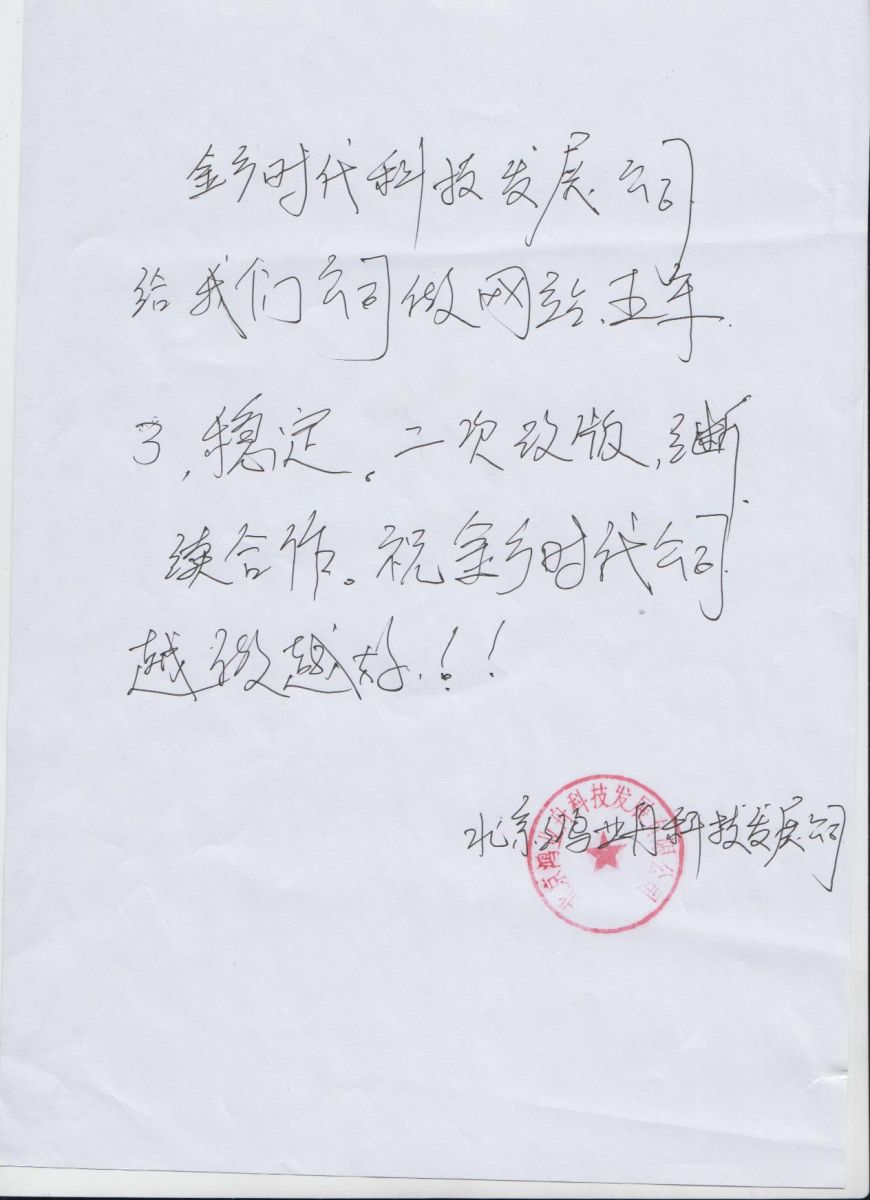 金乡时代科技发展公司
给我们公司做网站五年
了,稳定。二次改版,继
续合作。祝金乡时代公司
越做越好!!!
北京鸿业丹科技发展公司
北京鸿业丹科技发展有限公司